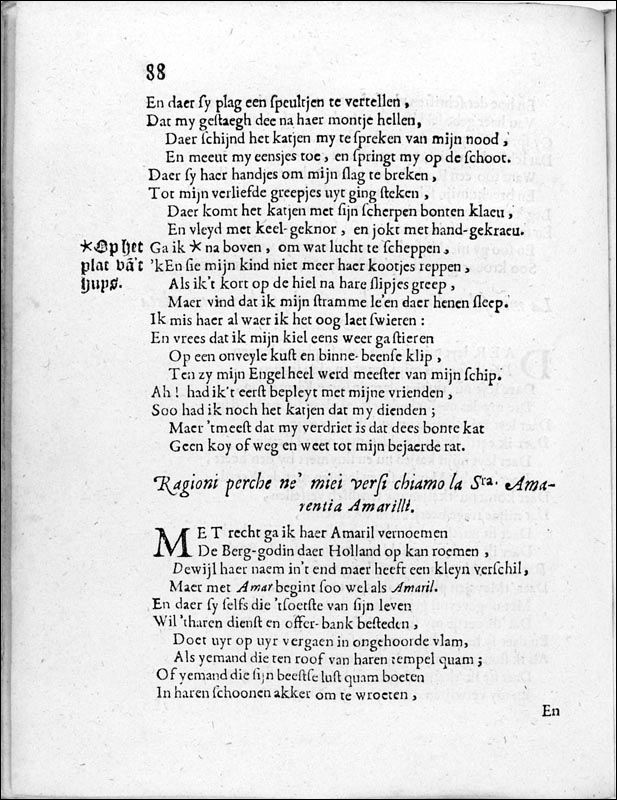 88
En daer sy plag een speultjen te vertellen,
Dat my gestaegh dee na haer montje hellen,
Daer schijnd het katjen my te spreken van mijn nood,
En meeut my eensjes toe, en springt my op de schoot.
Daer sy haer handjes om mijn slag te breken,
Tot mijn verliefde greepjes uyt ging steken,
Daer komt het katjen met sijn scherpen bonten klaeu,
En vleyd met keel-geknor, en jokt met hand-gekraeu.
*Op het
plat vā't
huys.
Ga ik * na boven, om wat lucht te scheppen,
'kEn sie mijn kind niet meer haer kootjes reppen,
Als ik't kort op de hiel na hare slipjes greep,
Maer vind dat ik mijn stramme le'en daer henen sleep.
Ik mis haer al waer ik het oog laet swieren:
En vrees dat ik mijn kiel eens weer ga stieren
Op een onveyle kust en binne-beense klip,
Ten zy mijn Engel heel werd meester van mijn schip.
Ah! had ik't eerst bepleyt met mijne vrienden,
Soo had ik noch het katjen dat my dienden;
Maer 'tmeest dat my verdriet is dat dees bonte kat
Geen koy of weg en weet tot mijn bejaerde rat.
Ragioni perche ne' miei versi chiamo la Sra. Ama-
rentia Amarilli.
MET recht ga ik haer Amaril vernoemen
De Berg-godin daer Holland op kan roemen,
Dewijl haer naem in't end maer heeft een kleyn verschil,
Maer met Amar begint soo wel als Amaril.
En daer sy selfs die 'tsoetste van sijn leven
Wil 'tharen dienst en offer-bank besteden,
Doet uyr op uyr vergaen in ongehoorde vlam,
Als yemand die ten roof van haren tempel quam;
Of yemand die sijn beestse lust quam boeten
In haren schoonen akker om te wroeten,
En